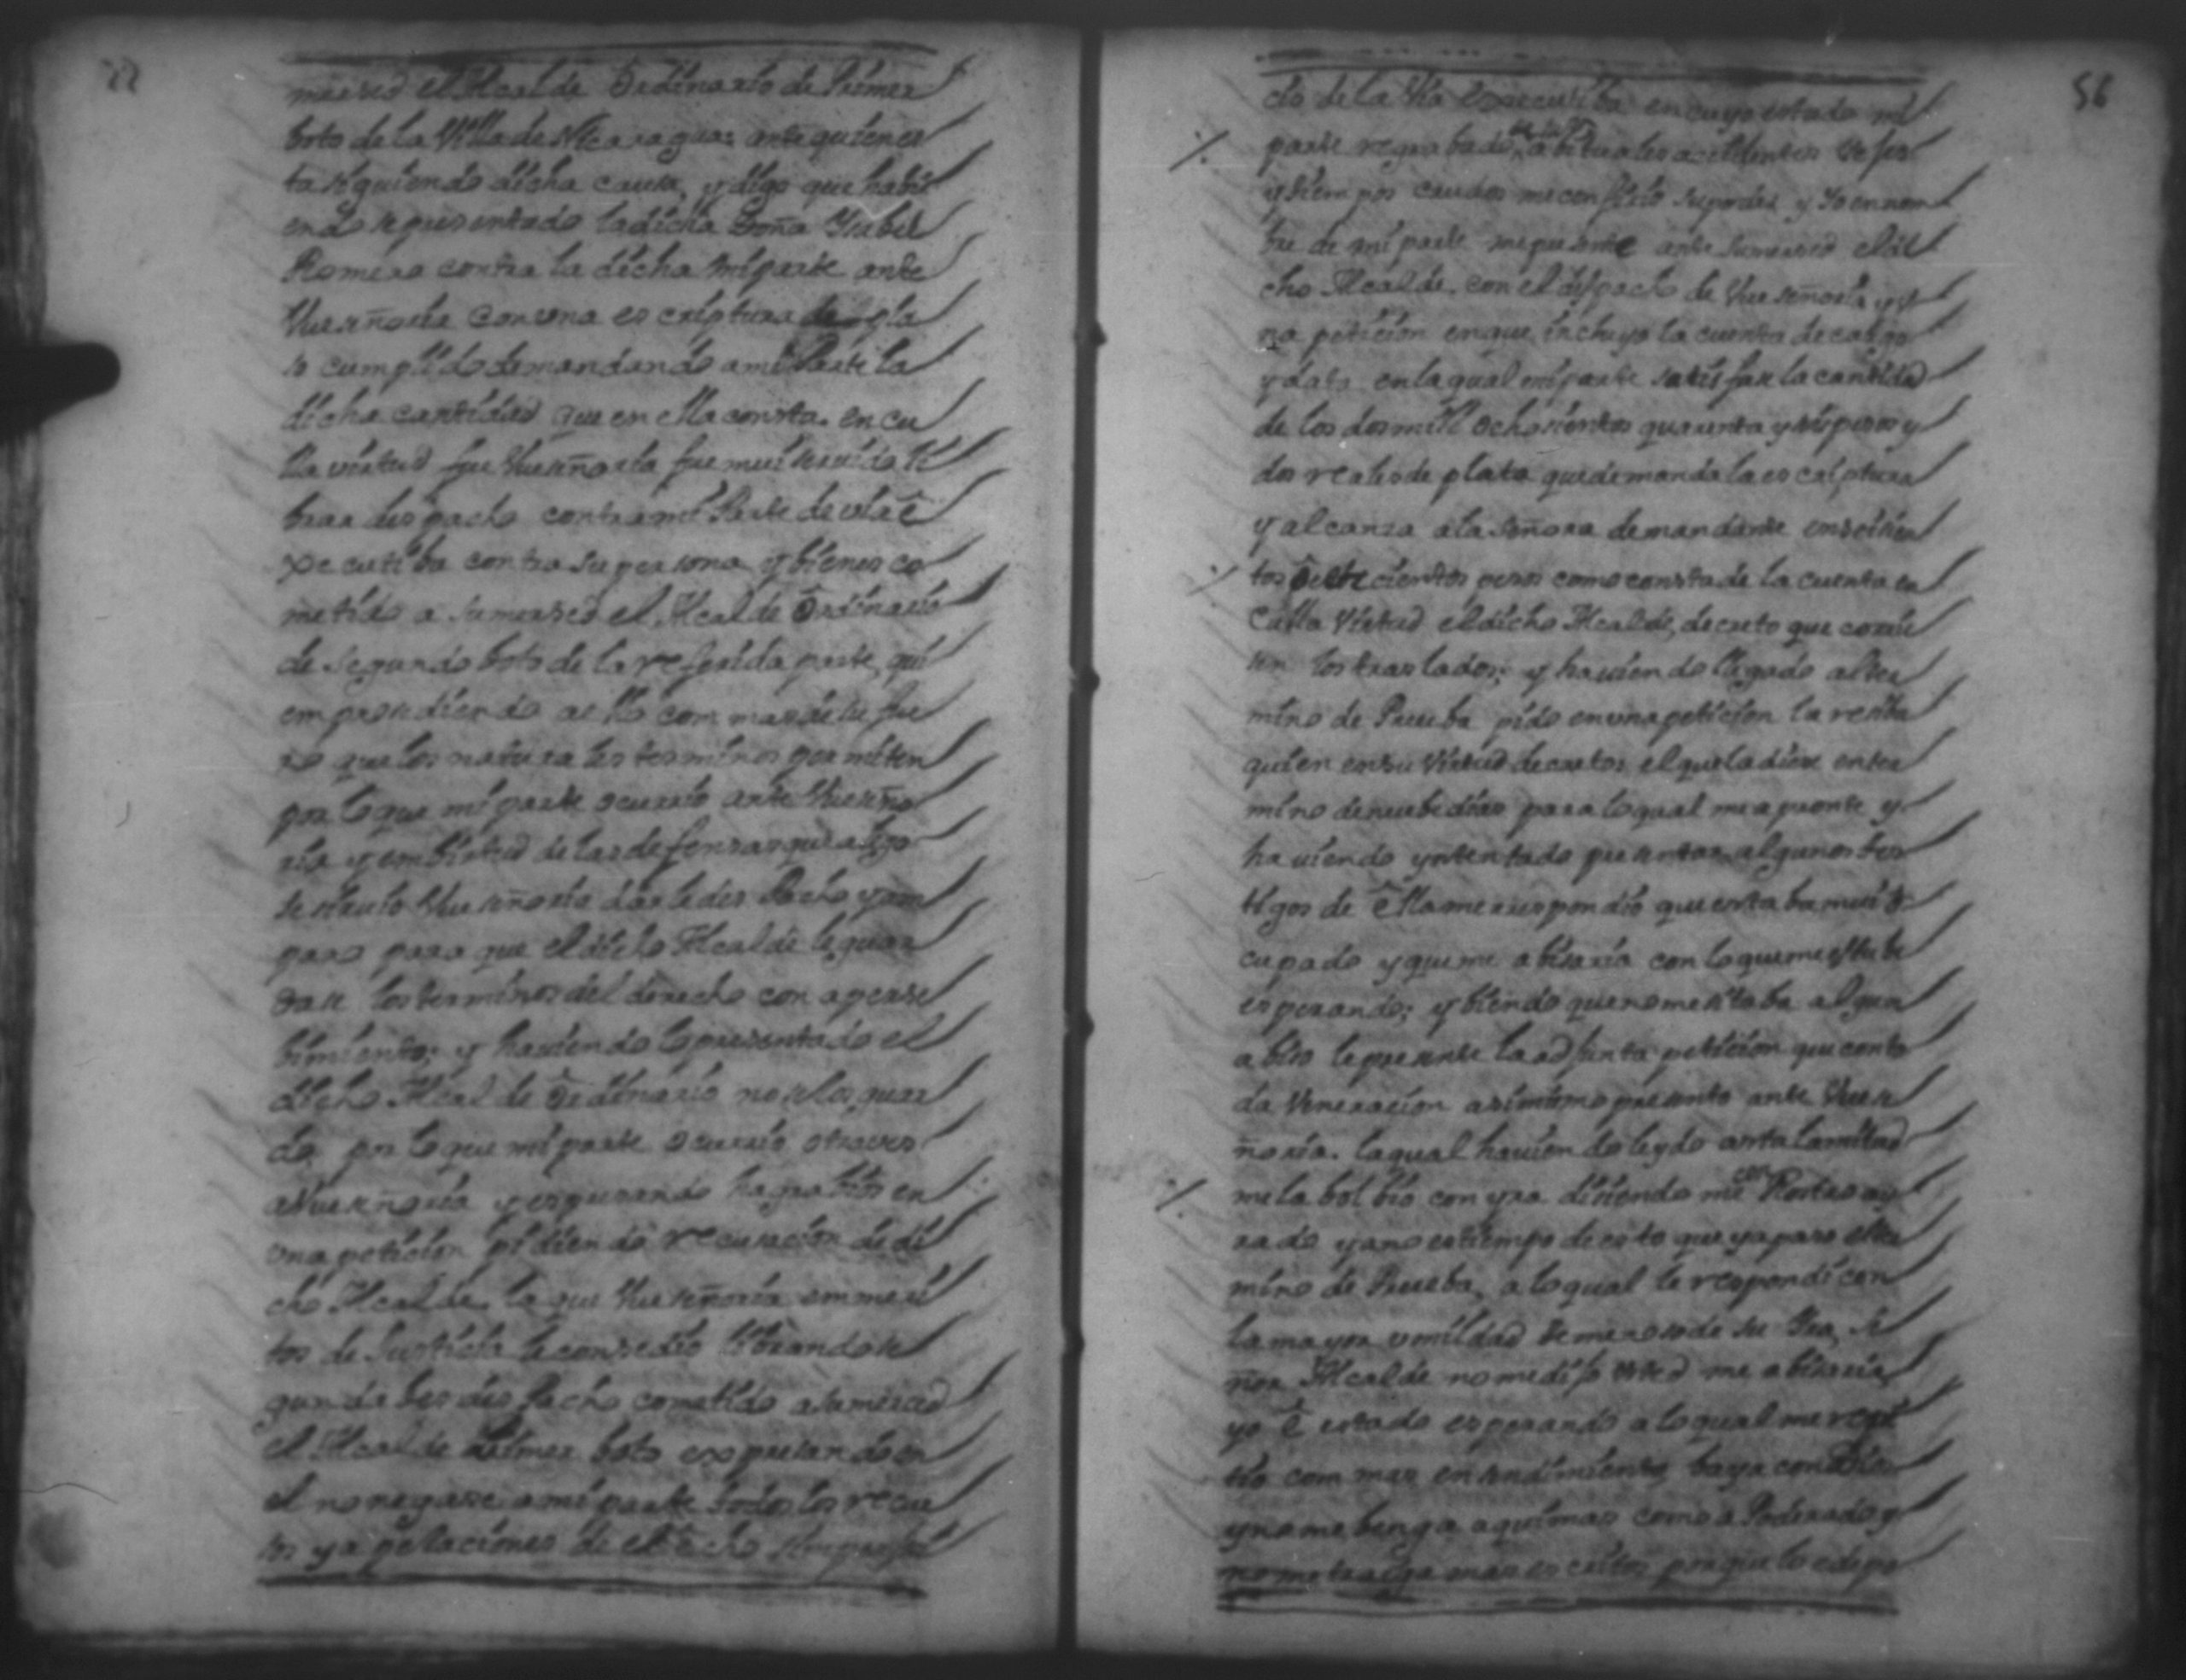 22
mersed el Alcalde Ordinario de Primer
boto de la Villa de Nicaragua: ante quien es
ta siguiendo dicha causa, y digo que habi
endo se presentado la dicha Doña Ysabel
Romero contra la dicha mi parte ante
Vueseñoria con una escriptura de pla
so cumplido demandando a mi Parte la
dicha cantidad que en ella consta. en cu
lla virtud fue Vueseñoria fue mui servido li
brar despacho contra mi Parte de via è
xecutiba contra su persona y bienes co
metido a sumersed el Alcalde Ordinario
de segundo boto de la referida parte, qui
em prosediendo a ello com mas de lu fue
ro que los naturales terminos permiten
por lo que mi parte ocurrio ante Vueseño
ria y em birtud de las defensas que alego
se sirvio Vueseñoria darle des Pacho y am
paro para que el dicho Alcalde le guar
dase los terminos del derecho con aperse
bimiento; y haviendo lo presentado el
dicho Alcalde Ordinario no se los guar
do por lo que mi parte ocurrio otra ves
a Vueseñoria y expresando hagrabios en
una peticion pidiendo recusacion de di
cho Alcalde, la que Vueseñoria em meri
tos de Justicia le consedio librando se
gunda bes des pacho cometido a sumersed
el Alcalde Primer boto expresando en
el no negase a mi parte todos los recur
sos y apelaciones de el
56
cio de la Via Executiba en cuyo estado mi
parte regrabado abituales accidentes
y tiempos crudos me confirio su poder y Yo en nom
bre de mi parte me presente ante sumersed el di
cho Alcalde. con el despacho de Vueseñoria y u
na peticion en que incluyo la cuenta de cargo
y data en la qual mi parte satisfase la cantidad
de los dos mill ochosientos quarenta y seis pesos y
dos reales de plata que demanda la escriptura
y alcanza a la señora demandante en seisien
tos Siete cientos pesos como consta de la cuenta en
Culla Virtud el dicho Alcalde, decreto que corrie
sen los traslados; y haviendo llegado al ter
mino de Prueba pido en una peticion la resiba
quien en su Virtud decreto, el que la diese en ter
mino de nuebe dias para lo qual me apronte y
haviendo yntentado presentar algunos tes
tigos de Ella me respondio que estaba mui o
cupado y que me abisaria con lo que me estube
esperando; y biendo que no me sitaba algun
abiso le presente la adjunta peticion que con to
da Veneracion asimismo presento ante Vuese
ñoria. la qual haviendo leydo asta la mitad
me la bolbio con yra disiendo me con Rostro ay
rado ya no es tiempo de esto que ya paso el ter
mino de Prueba, a lo qual le respondi con
la mayor vmildad temeroso de su Yra, Se
ñor Alcalde no me dijo Usted me abisaria
yo è estado esperando a lo qual me repi
tio com mas ensendimiento baya con Dios
y no me benga aqui mas como a Poderado y
no me traiga mas escritos porque lo e de po